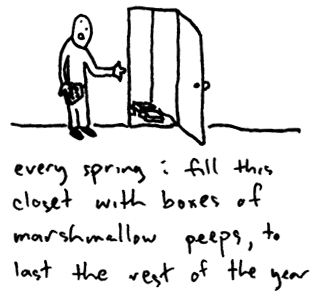 every spring i fill this
closet with boxes of
marshmallow peeps, to
last the rest of the year